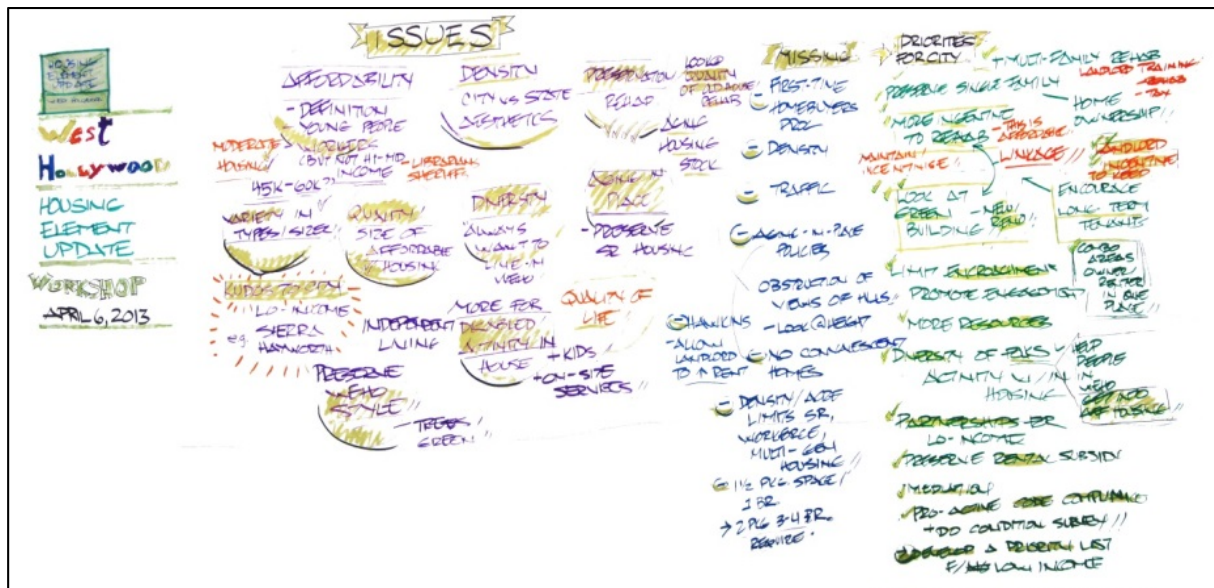 HOUSING
ELEMENT
UPDATE
West
Hollywood
HOUSING
ELEMENT
UPDATE
WORKSHOP
APRIL 6, 2013
ISSUES
AFFORDABILITY
- DEFINITION
YOUNG PEOPLE
WORKERS
(BUT NOT HI-MID
INCOME
- LIBRARIAN
SHERIFF
MODERATE
HOUSING
45K-60K?
VARIETY IN
TYPES/SIZES
QUALITY/
SIZE OF
AFFORDABLE
HOUSING
KUDOS TO
LO-INCOME
e.g. SIERRA
HAYWORTH
INDEPENDENT
LIVING
PRESERVE
WEHO
STYLE
- TREES
GREEN
DENSITY
CITY VS STATE
AESTHETICS
DIVERSITY
ALWAYS
WANT TO
LIVE IN
WEHO
MORE FOR
DISABLED
ACTIVITY IN
HOUSE
+ KIDS
+ ON-SITE
SERVICES
PRESERVATION
REHAB
LOOK @
QUALITY
OF OLD HOUSE
REHAB
AGING
HOUSING
STOCK
AGING IN
PLACE
- PRESERVE
SR HOUSING
QUALITY OF
LIFE
MISSING
- FIRST-TIME
HOMEBUYERS
PROG
- DENSITY
- TRAFFIC
- AGING-IN-PLACE
POLICIES
OBSTRUCTION OF
VIEWS OF HILLS
- LOOK @ HEIGHT
- NO CONVALESCENT
HOMES
HAWKINS
- ALLOW
LANDLORD
TO ↑ RENT
- DENSITY/ACRE
LIMITS SR,
WORKFORCE,
MULTI-GEN
HOUSING
1 1/2 PKG. SPACE/
1 BR
→ 2 PKG 3-4 BR.
REQUIRE.
PRIORITES
FOR CITY
MULTI-FAMILY REHAB
PRESERVE SINGLE FAMILY
LANDLORD TRAINING
- REHAB
- TAX
HOME
OWNERSHIP!!
MORE INCENTIVE
TO REHAB
- THIS IS
AFFORDABLE
MAINTAIN
INCENTIVISE
- LINKAGE
LANDLORD
INCENTIVE
TO KEEP
LOOK AT
GREEN - NEW/
BUILDING RENO
ENCOURAGE
LONG TERM
TENANTS
COMBO
AREAS
OWNER/
RENTER
IN ONE
PLACE
LIMIT ENCROACHMENT
PROMOTE ENGAGEMENT
MORE RESOURCES
DIVERSITY OF FOLKS
ACTIVITY W/IN
HOUSING
HELP
PEOPLE
IN
WEHO
GET INTO
AFF HOUSING
PARTNERSHIPS FOR
LO-INCOME
PRESERVE RENTAL SUBSIDY
MEDIATION
PRO-ACTIVE CODE COMPLIANCE
+ DO CONDITION SURVEY!!
DEVELOP A PRIORITY LIST
F/ LOW INCOME